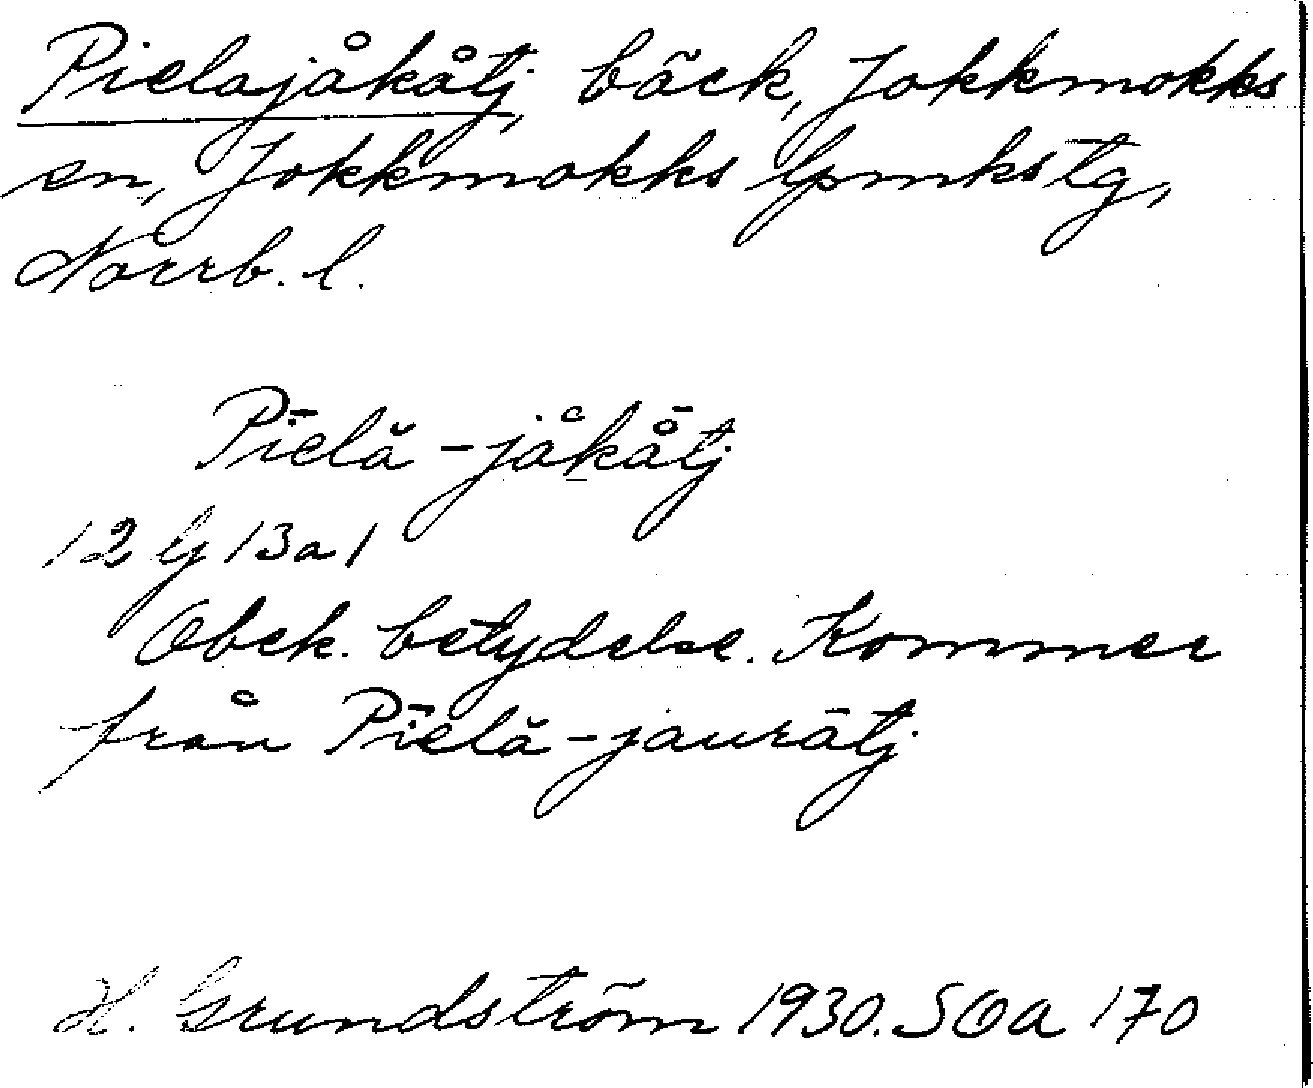 Pielajåkåtj, bäck, Jokkmokks
sn, Jokkmokks lpmkstg,
Norrb. l.
Pīelă-jåkå̄tj
12 G 13a1
Obek. betydelse. Kommer
från Pīelă-jaurātj
H. Grundström 1930. SOa 170